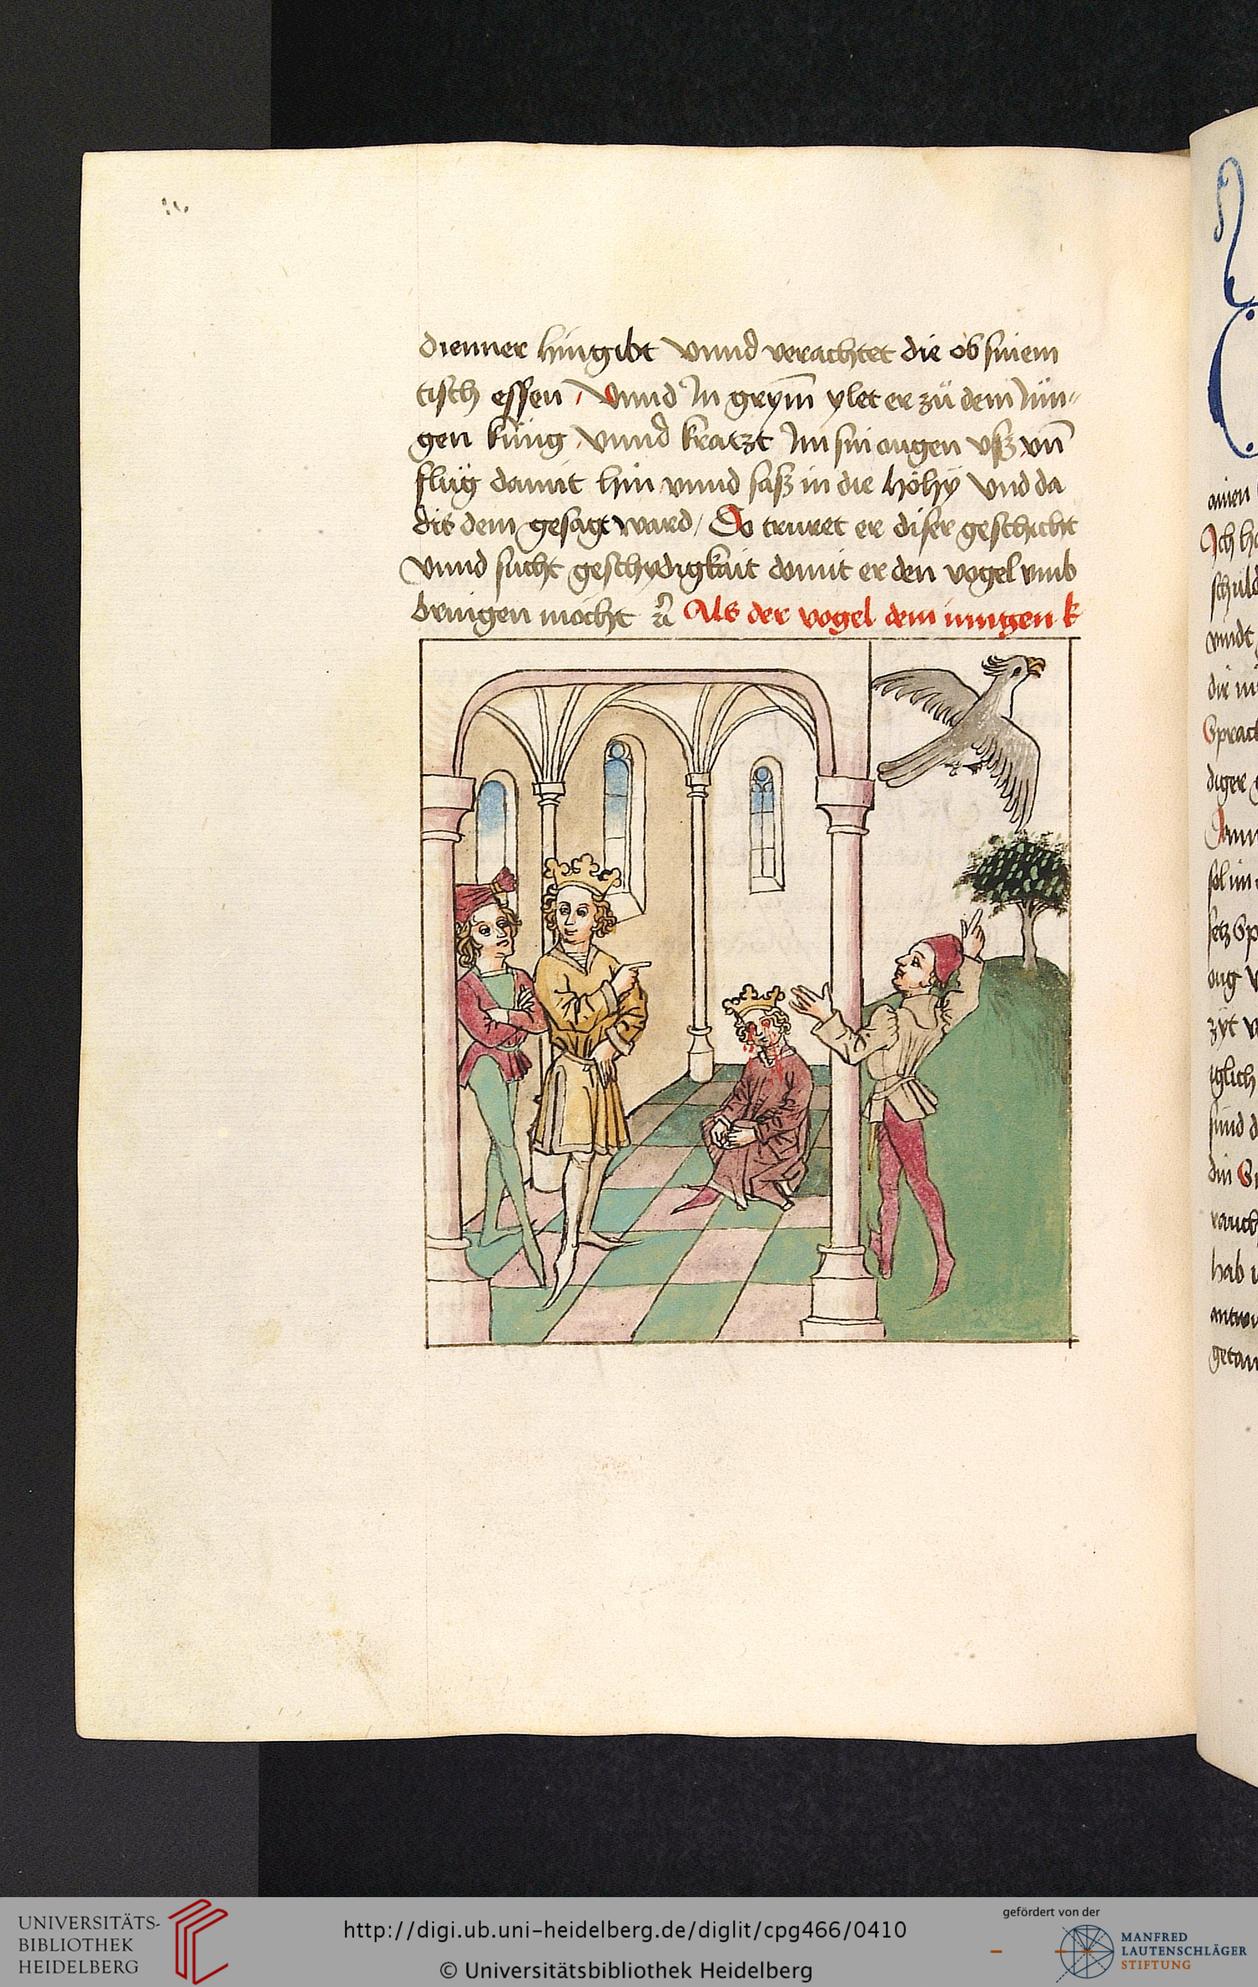 dienner hingibt Vnnd verachtet die ob sinem
tisch essen / Vnnd In grym̄ ylet er zů dem Jun=
gen kúng Vnnd kratzt Im sin augen vsz vn̄
flúg damit hin vnnd sasz in die höhÿ Vnd da
dis dem gesagt ward / Do truret er diser geschicht
Vnnd sucht geschydigkait domit er den vogel vmb
bringen möcht Als der vogel dem iungen k
ainen
Ich
UNIVERSITÄTS-
BIBLIOTHEK
HEIDELBERG
http://digi.ub.uni-heidelberg.de/diglit/cpg466/0410
© Universitätsbibliothek Heidelberg
gefördert von der
MANFRED
LAUTENSCHLÄGER
STIFTUNG